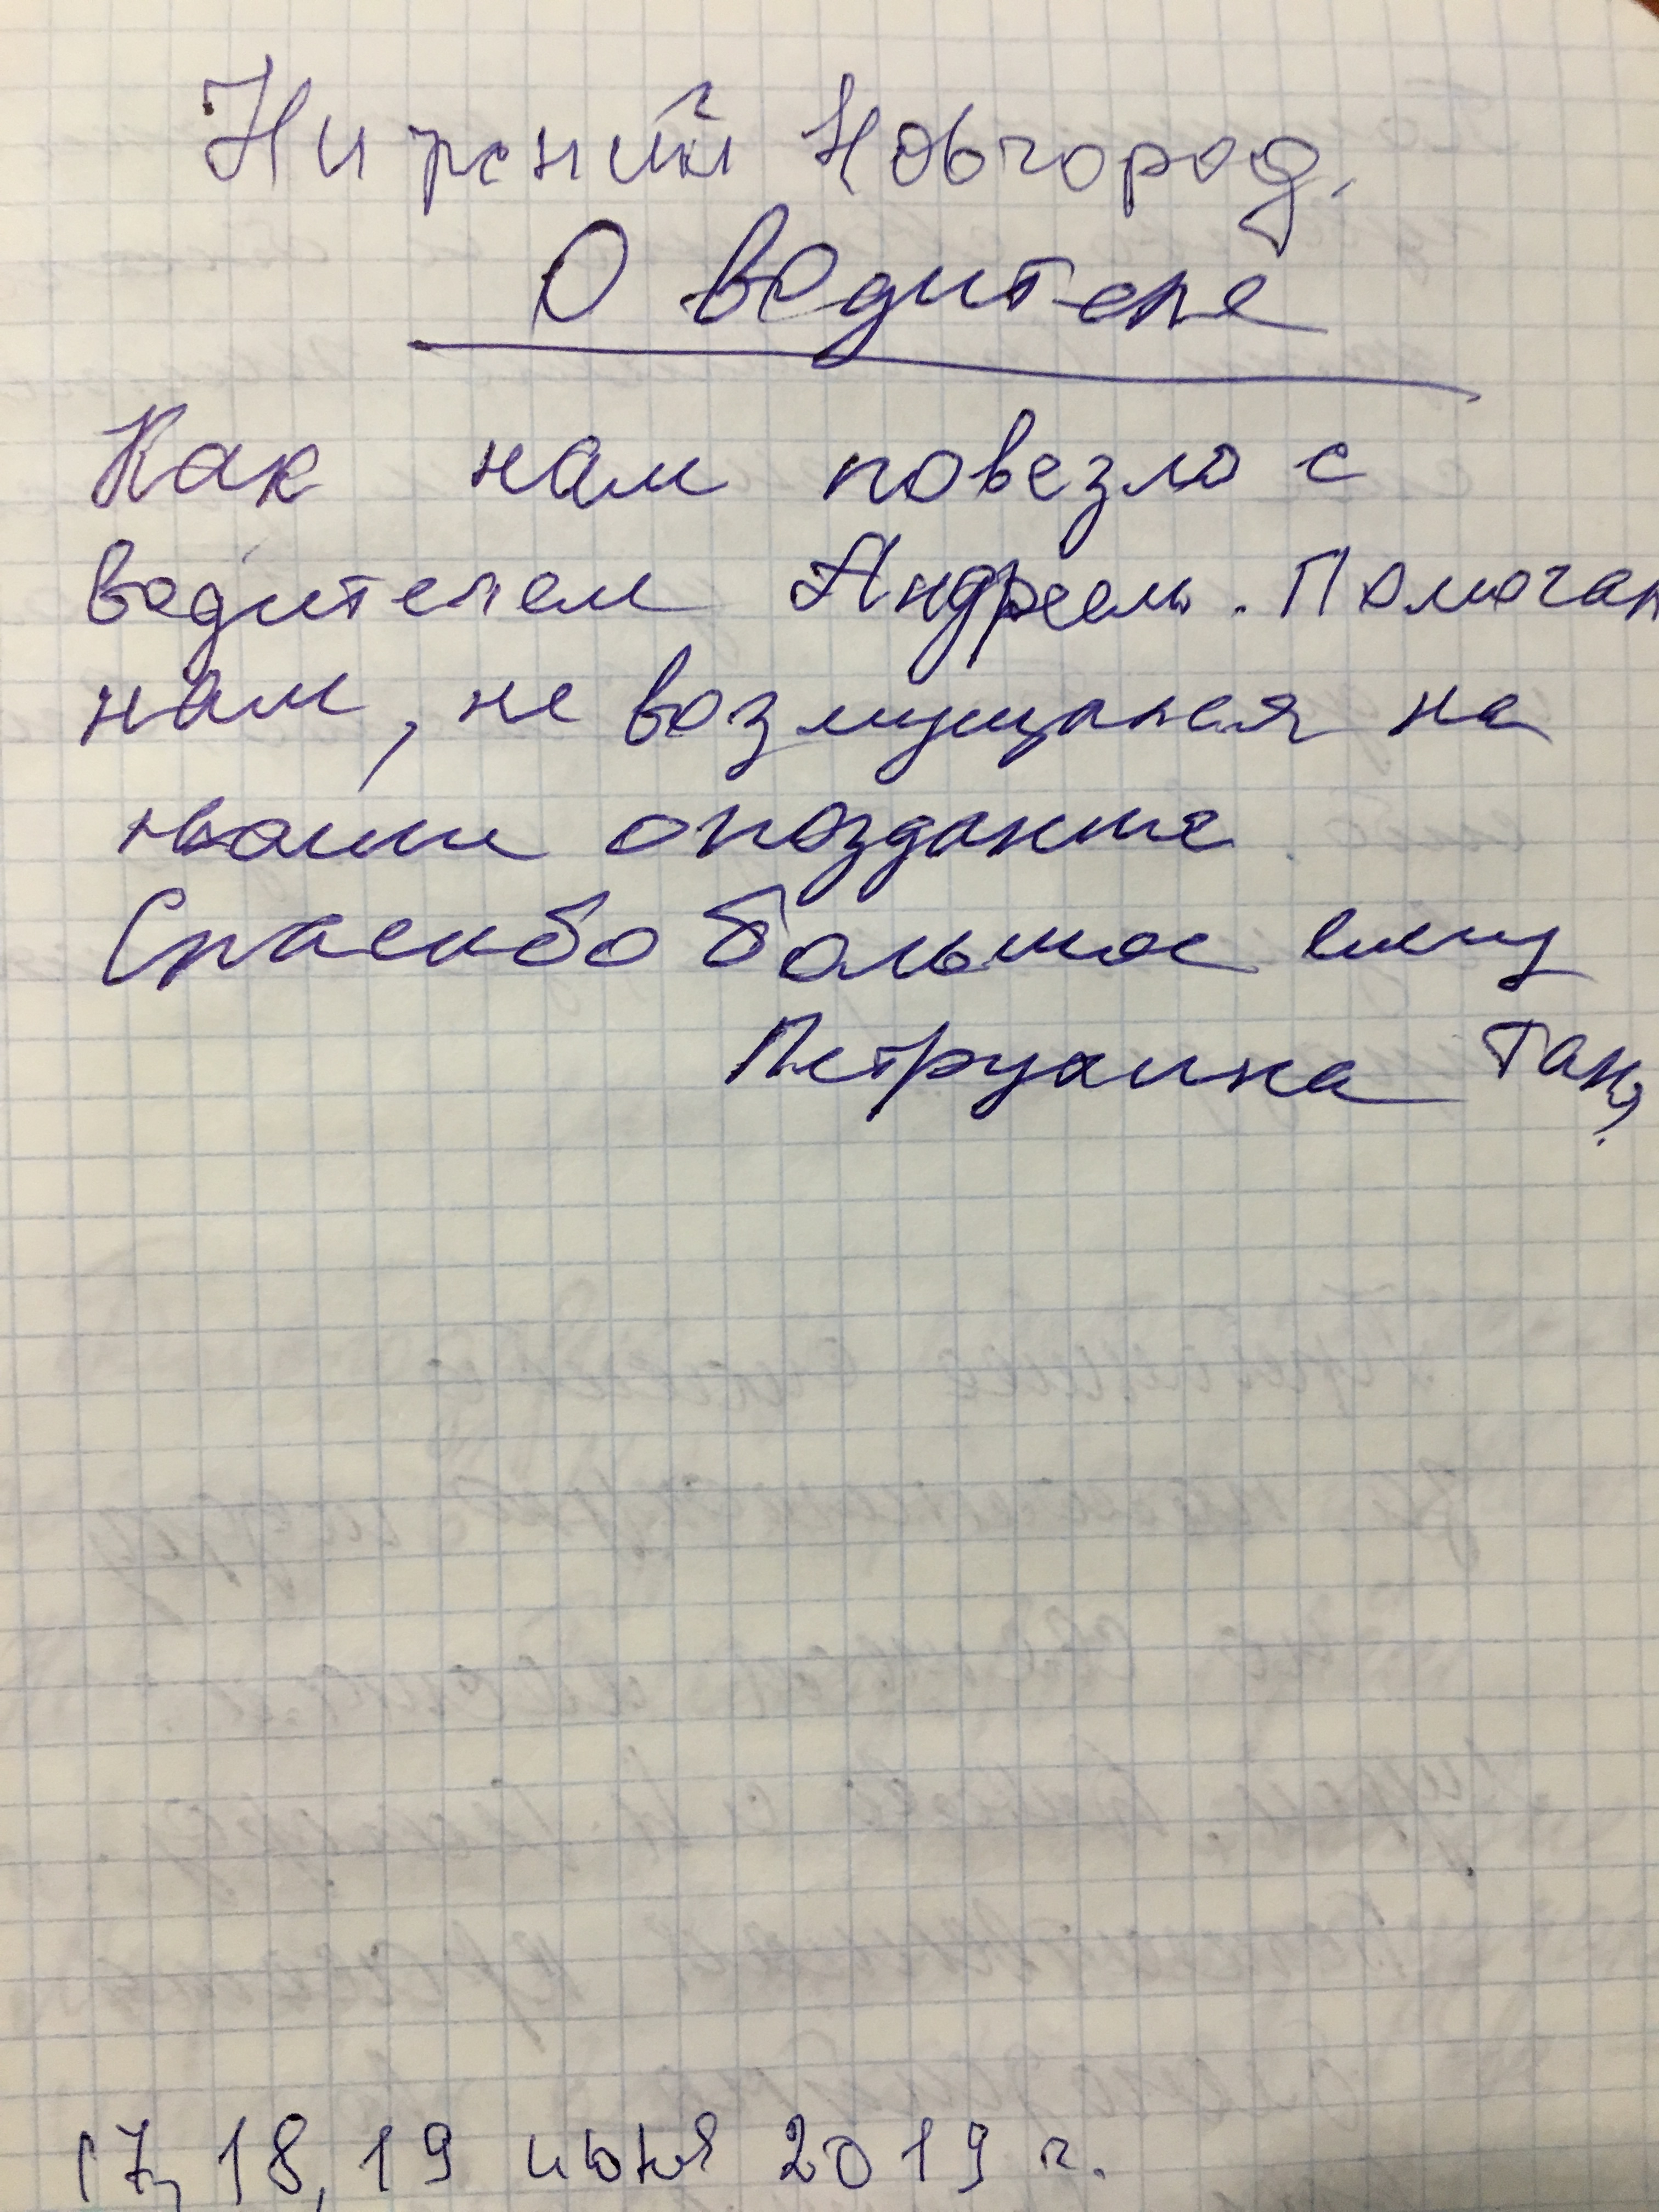 Нижний Новгород.
О водителе
Как нам повезло с
водителем Андреем. Помогал
нам, не возмущался на
наши опоздание.
Спасибо большое ему
Петрухина Таня
17, 18, 19 июля 2019 г.